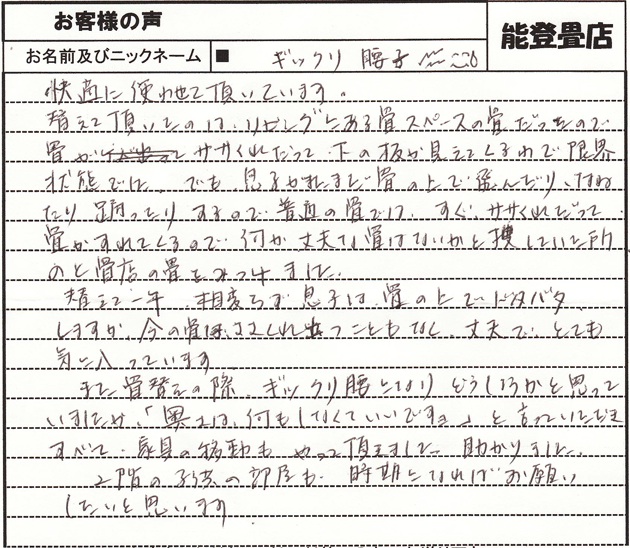 お客様の声
能登畳店
お名前及びニックネーム ■ ギックリ腰子
快適に使わせて頂いています。
替えて頂いたのは、リビングにある畳スペースの畳だったので
畳が ササくれだって、下の板が見えてくるわで限界
状態でした。でも、息子がまだまだ畳の上で飛んだり、はね
たり 踊ったりするので、普通の畳では、すぐ、ササくれだって
畳がすれてくるので、何か丈夫な畳はないかと捜していた所
のと畳店の畳をみつけました。
替えて一年、相変らず息子は、畳の上でドタバタ
しますが、今の畳は、ささくれ立つこともなく、丈夫で、とても
気に入っています
また畳替えの際、ギックリ腰になり どうしようかと思って
いましたが、「奥さんは、何もしなくていいですョ」と言っていただき
すべて、家具の移動も やって頂きました。助かりました。
2階の子供の部屋も、時期になればお願い
したいと思います